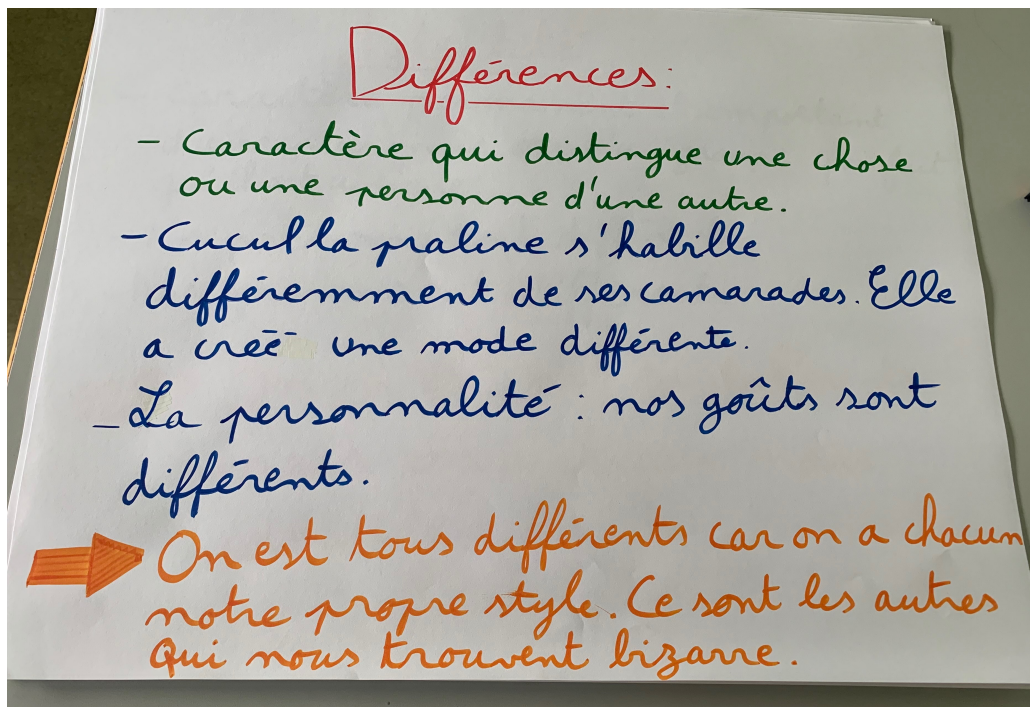 Différences:
- Caractère qui distingue une chose
ou une personne d'une autre.
- Cucul la praline s'habille
différemment de ses camarades. Elle
a créé une mode différente.
- La personnalité : nos goûts sont
différents.
On est tous différents car on a chacun
notre propre style. Ce sont les autres
qui nous trouvent bizarre.